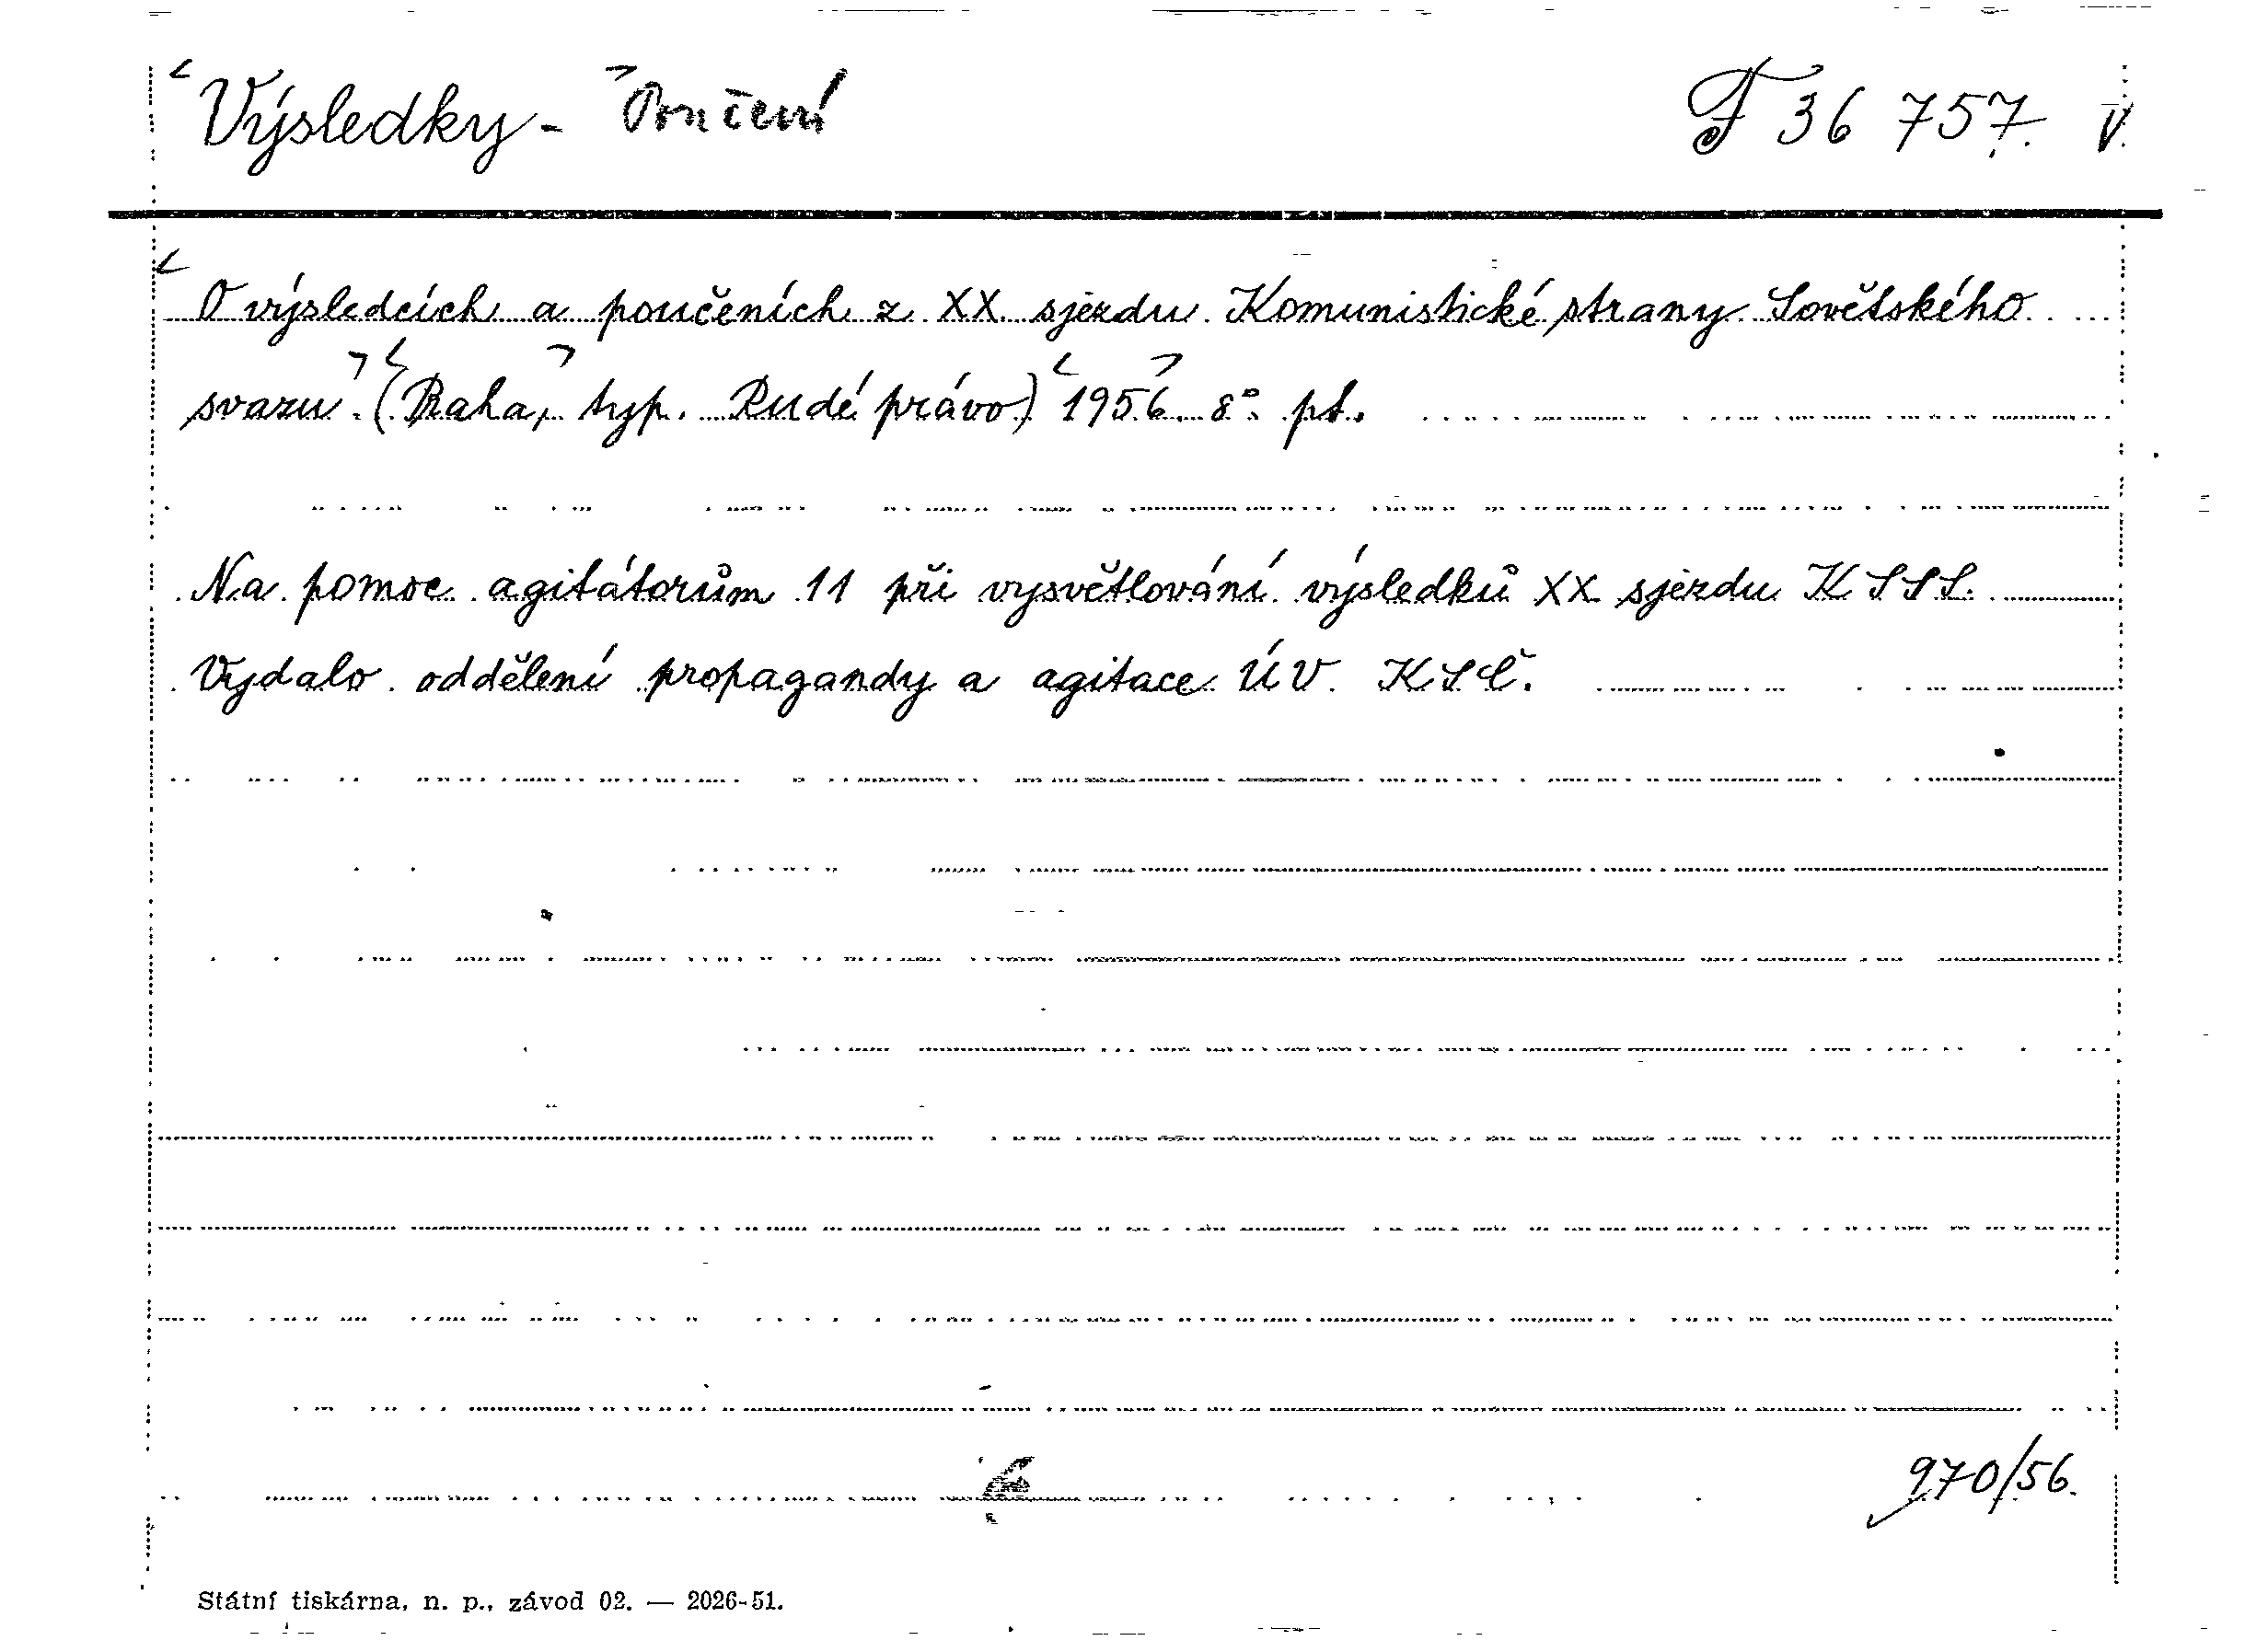 Výsledky - Poučení F 36 757. V.
O výsledcích a poučeních z XX sjezdu Komunistické strany Sovětského
svazu. (Praha, typ. Rudé právo) 1956. 8°. pt.
Na pomoc agitátorům 11 při vysvětlování výsledků XX sjezdu KSSS.
Vydalo oddělení propagandy a agitace ÚV KSČ.
970/56.
Státní tiskárna, n. p., závod 02. — 2026-51.